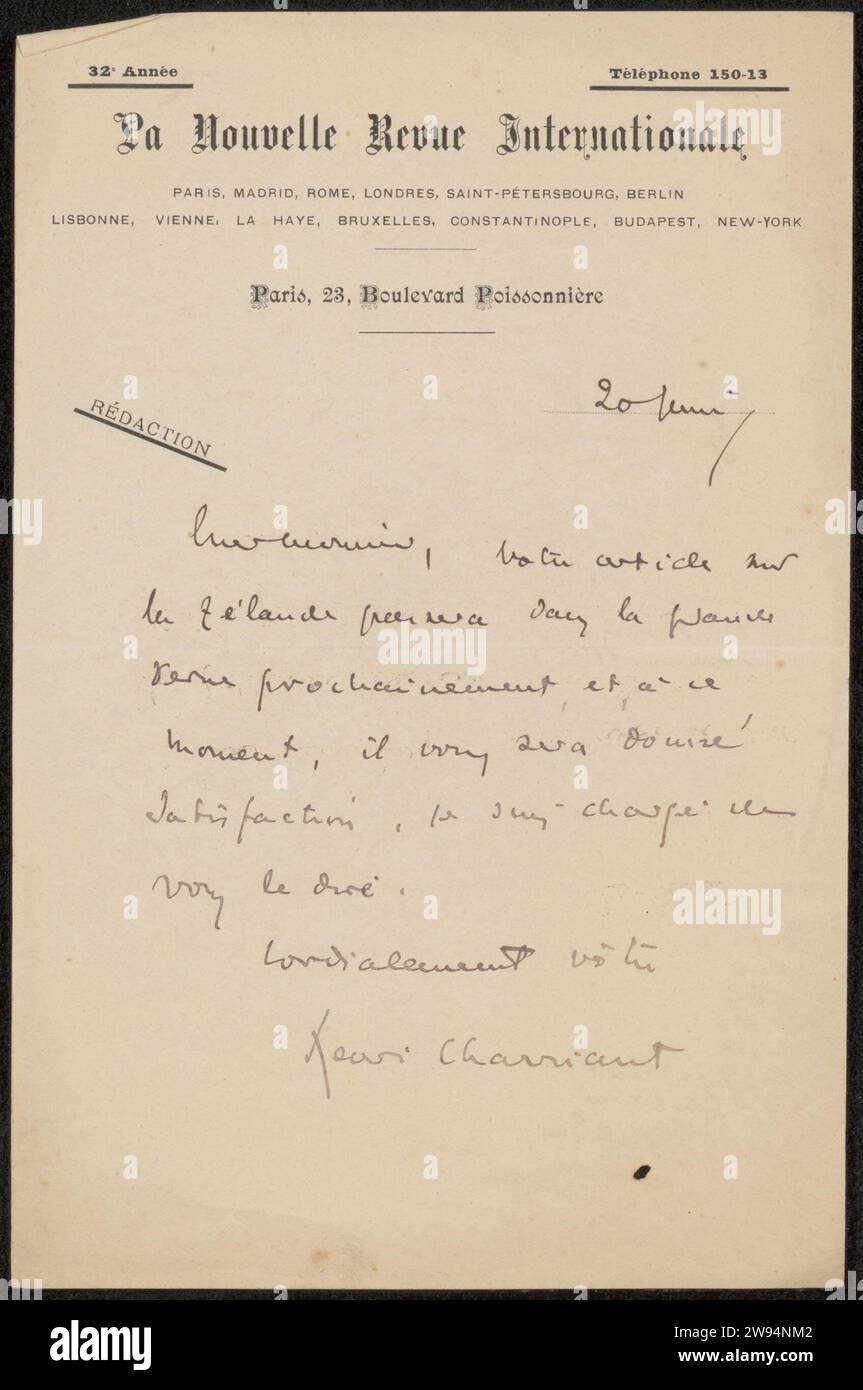 32e Année
Téléphone 150-13
La Nouvelle Revue Internationale
PARIS, MADRID, ROME, LONDRES, SAINT-PÉTERSBOURG, BERLIN
LISBONNE, VIENNE, LA HAYE, BRUXELLES, CONSTANTINOPLE, BUDAPEST, NEW-YORK
Paris, 23, Boulevard Poissonnière
20 juin
RÉDACTION
Cher monsieur, votre article sur
la Zélande passera dans la grande
revue prochainement et à ce
moment, il vous sera donné
satisfaction. Je suis chargé de
vous le dire.
Cordialement vôtre
Henri Charriaut
alamy
Image ID: 2W94NM2
www.alamy.com